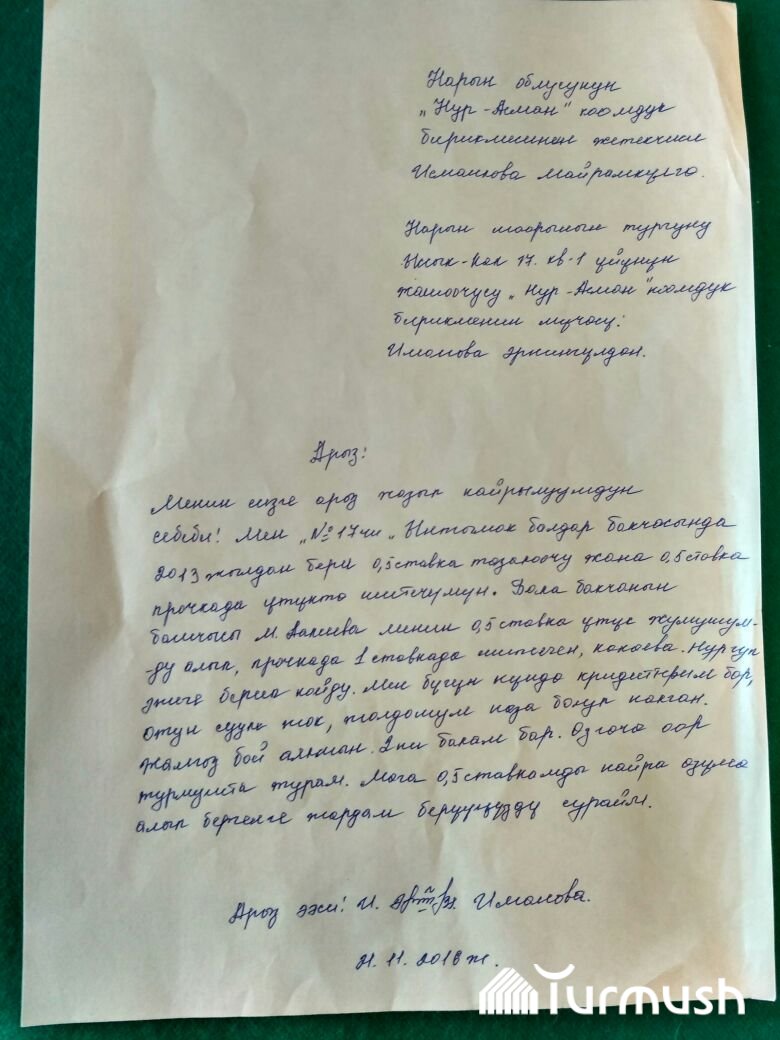 Нарын облусунун
"Нур-Асман" коомдук
бирикмесинен жетекчиси
Исмаилова Майрамкулга.
Нарын шаарынын тургуну
Ысык-Кол 17. кв-1 үйүнүн
жашоочусу "Нур-Асман" коомдук
бирикменин мүчөсү:
Иманова Эркингулдан.
Арыз:
Менин сизге арыз жазып кайрылуумдун
себеби! Мен "№17чи" Ынтымак балдар бакчасында
2013 жылдан бери 0,5 ставка тазалоочу жана 0,5 ставка
прочкада утукто иштечумун. Бала бакчанын
башчысы М. менин 0,5 ставка утук жумушум-
ду алып, прочкада 1 ставкада иштеген, Нургул
эжеге берип койду. Мен бүгүн күндө кридиттерим бар,
отун суум жок, жолдошум каза болуп калган.
Жалгыз бой аялмын. 2ки балам бар. Өзгөчө оор
турмушта турам. Мага 0,5 ставкамды кайра өзүмө
алып бергенге жардам берүүңүздү сурайм.
Арыз ээси: И. Иманова.
21.11.2018ж.
Turmush